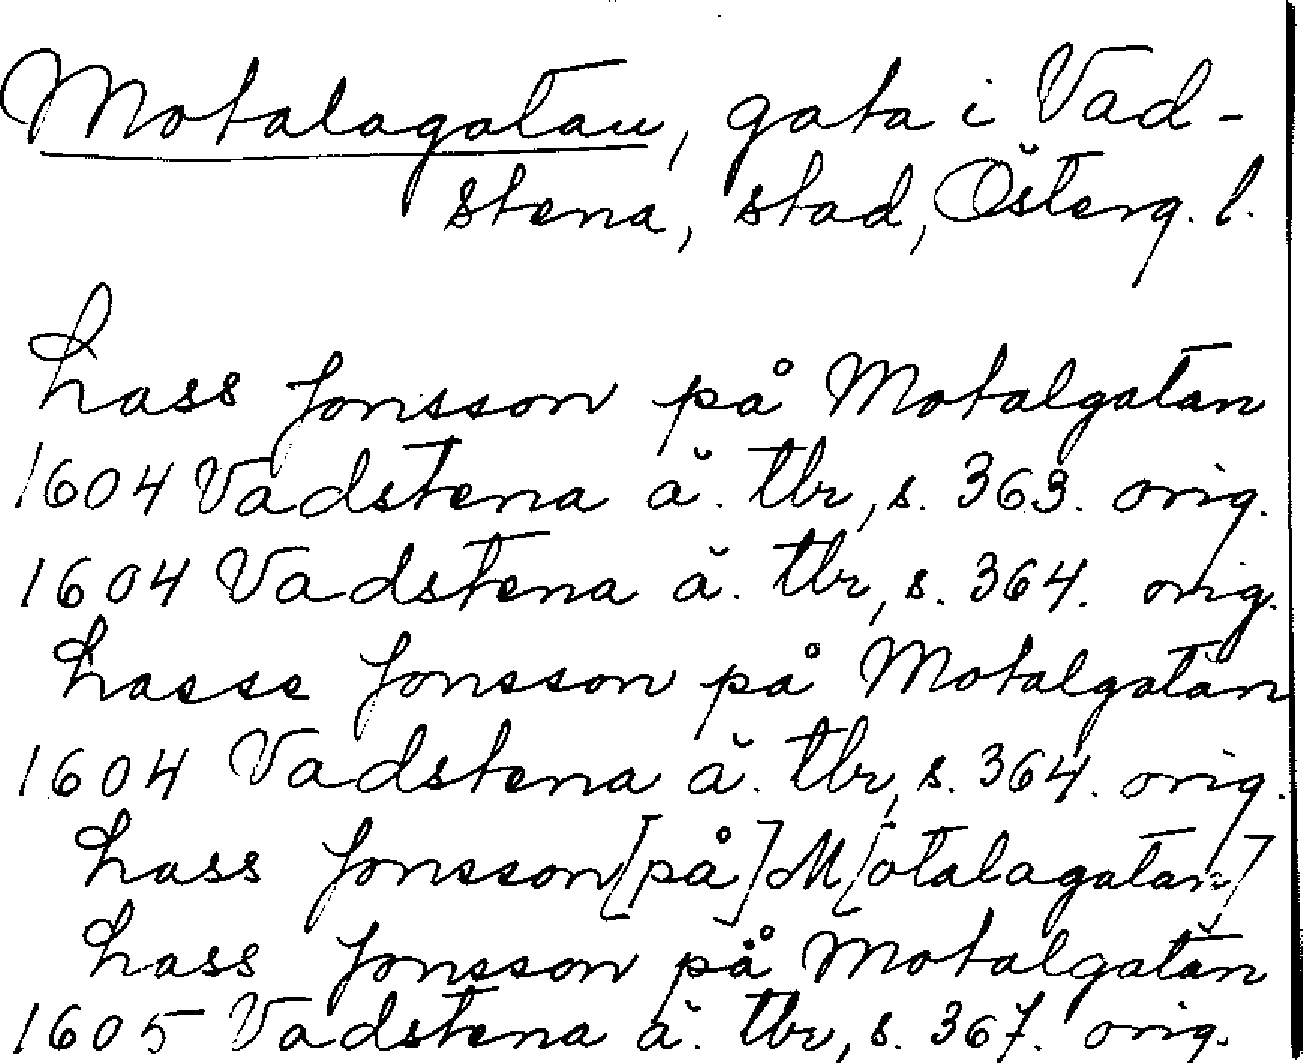 Motalagatan, gata i Vad-
stena, stad, Österg. l.
Lass Jonsson på Motalgatan
1604 Vadstena ä. tbr, s. 363. orig.
1604 Vadstena ä. tbr, s. 364. orig.
Lasse Jonsson på Motalgatan
1604 Vadstena ä. tbr, s. 364. orig.
Lass Jonsson [på] M[otalagatan]
Lass Jonsson på Motalgatan
1605 Vadstena ä. tbr, s. 367. orig.